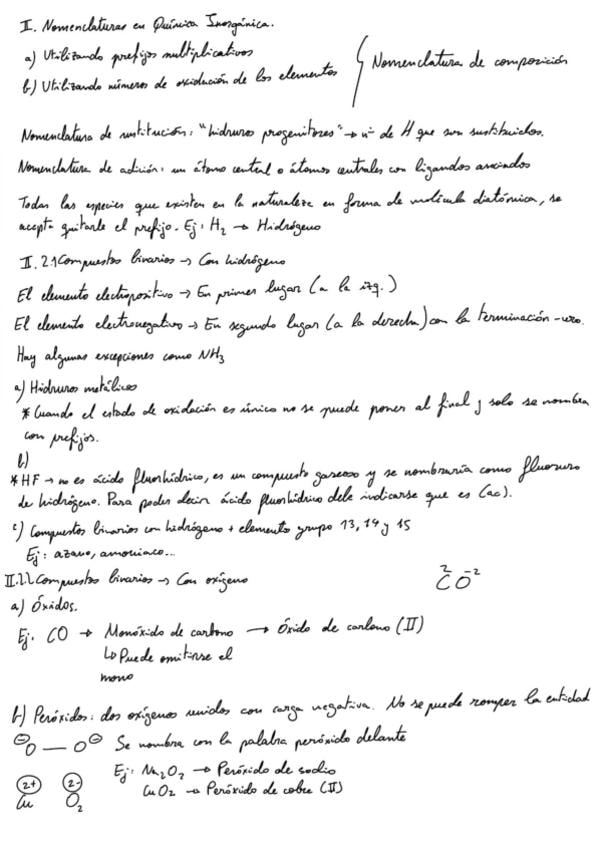 II. Nomenclaturas en Química Inorgánica.
a) Utilizando prefijos multiplicativos
b) Utilizando números de oxidación de los elementos
Nomenclatura de composición
Nomenclatura de sustitución: "hidruros progenitores" → nº de H que son sustituidos.
Nomenclatura de adición: un átomo central o átomos centrales con ligandos asociados
Todas las especies que existen en la naturaleza en forma de molécula diatómica, se
acepta quitarle el prefijo. Ej: H2 → Hidrógeno
II. 2.1 Compuestos binarios → Con hidrógeno
El elemento electropositivo → En primer lugar (a la izq.)
El elemento electronegativo → En segundo lugar (a la derecha) con la terminación -uro.
Hay algunas excepciones como NH3
a) Hidruros metálicos
* Cuando el estado de oxidación es único no se puede poner al final y solo se nombra
con prefijos.
b)
* HF → no es ácido fluorhídrico, es un compuesto gaseoso y se nombraría como fluoruro
de hidrógeno. Para poder decir ácido fluorhídrico debe indicarse que es (ac).
c) Compuestos binarios con hidrógeno + elemento grupo 13, 14 y 15
Ej: azano, amoniaco...
II.2.2 Compuestos binarios → Con oxígeno
2 -2
C O
a) Óxidos.
Ej. CO → Monóxido de carbono → Óxido de carbono (II)
↳ Puede omitirse el
mono
b) Peróxidos: dos oxígenos unidos con carga negativa. No se puede romper la entidad
⊖O — O⊖ Se nombra con la palabra peróxido delante
Ej: Na2O2 → Peróxido de sodio
CuO2 → Peróxido de cobre (II)
2+ 2-
Cu O2